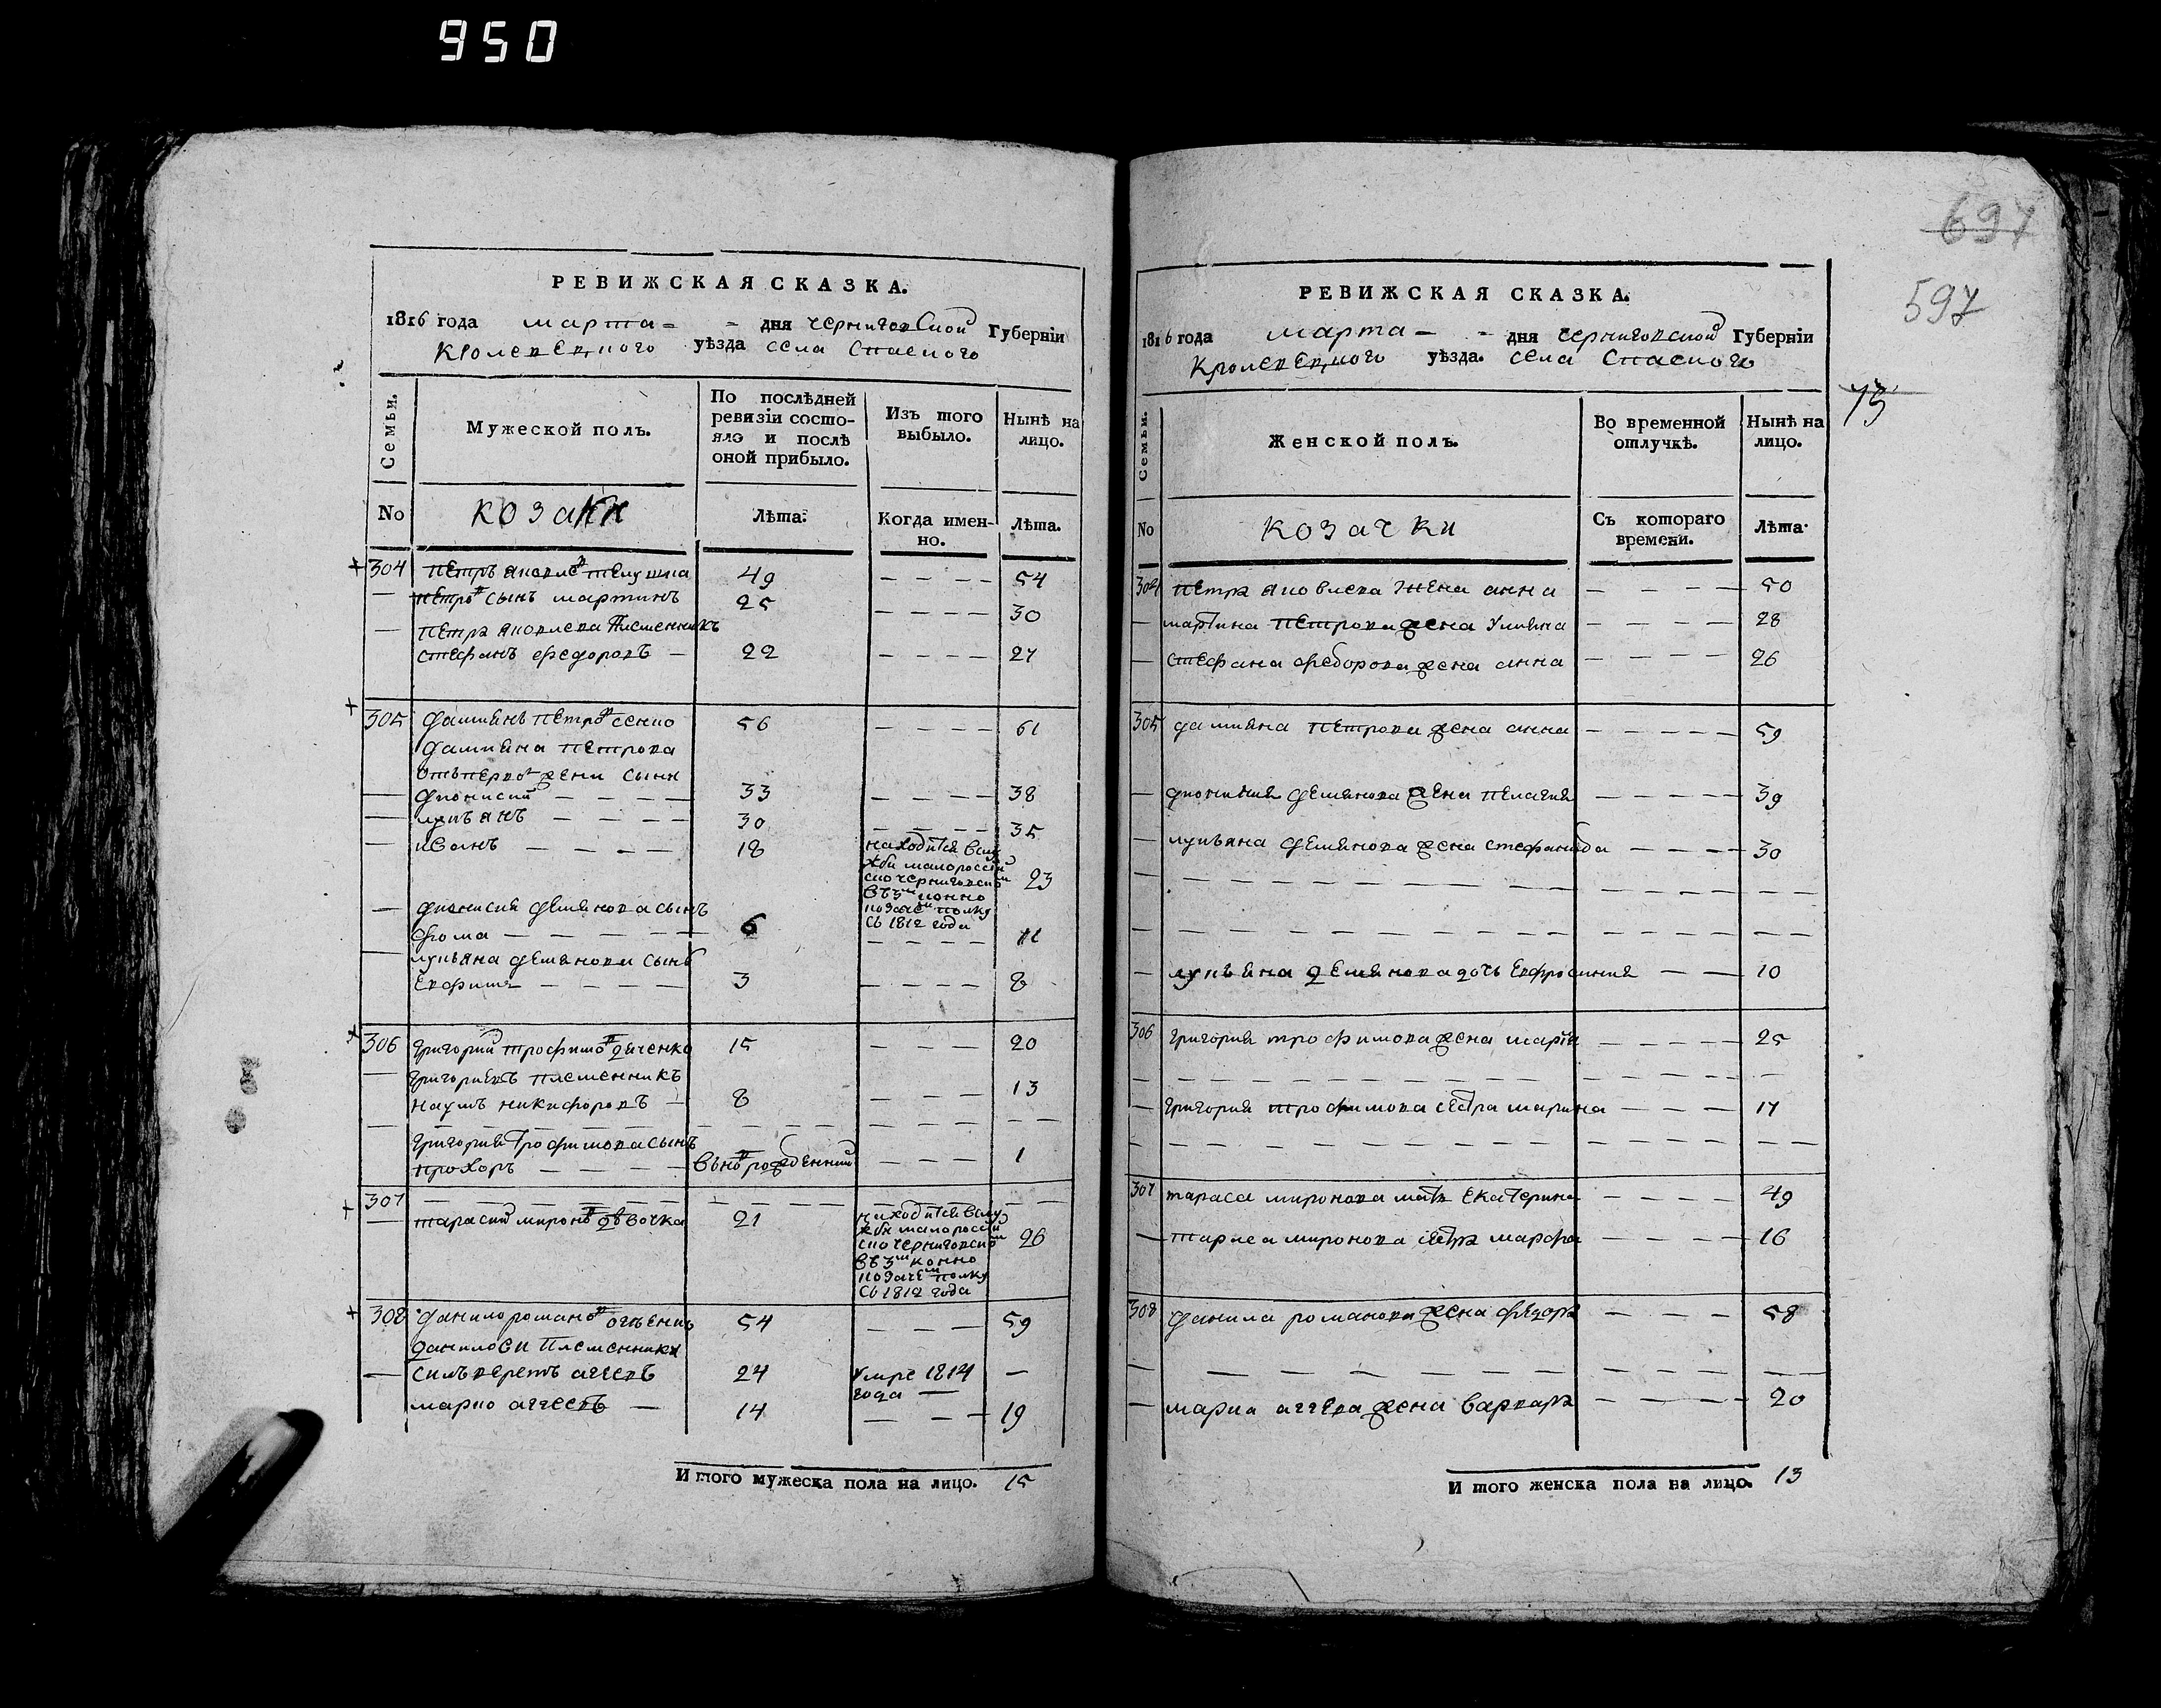 950
697
597
75
РЕВИЖСКАЯ СКАЗКА.
1816 года марта дня Черниговской Губерніи
Кролевецкого уѣзда села Спаского
Семьи.
Мужеской полъ.
По послѣдней ревизіи состояло и послѣ оной прибыло.
Изъ того выбыло.
Нынѣ на лицо.
No козаки Лѣта. Когда именно. Лѣта.
304 Петръ Яковлевъ 49 — — — — 54
— Петровъ сынъ Мартинъ 25 — — — — 30
— Петра Яковлева племенникъ
Стефанъ Федоровъ — 22 — — — — 27
305 Дамиянъ Петровъ Сенко 56 — — — — 61
Дамияна Петрова
отъ первой жени сыны
— Дионисий — — — — 33 — — — — 38
— Лукъянъ — — — — 30 — — — — 35
— Иванъ — — — — 18 находится в службе малоросийско черниговском въ 3м конно козачем полку съ 1812 года 23
— Дионисия Демянова сынъ
Фома — — — — — 6 — — — — 11
— Лукьяна Демянова сынъ
Евфимъ — — — — 3 — — — — 8
306 Григорий Трофимовъ Дяченко 15 — — — 20
— Григориевъ племенникъ
Наумъ Никифоровъ — 8 — — — 13
— Григория Трофимова сынъ
Прохоръ — — — — вновь рожденний — — — 1
307 — — — — —
— Тарасий Мироновъ Девочка 21 находится в службе малоросийско черниговском въ 3м конно козачем полку съ 1812 года 26
308 Данило Романовъ 54 — — — 59
Данилови племенники
— Силъверстъ Аггеевъ 24 умре 1814 года — —
Марко Аггеевъ — 14 — — — 19
И того мужеска пола на лицо. 15
РЕВИЖСКАЯ СКАЗКА.
1816 года марта дня Черниговской Губерніи
Кролевецкого уѣзда. села Спаского
Семьи.
Женской полъ.
Во временной отлучкѣ.
Нынѣ на лицо.
No козачки Съ котораго времени. Лѣта
304 Петра Яковлева жена Анна — — — — 50
— Мартина Петрова жена Улияна — — — — 28
— Стефана Федорова жена Анна — — — — 26
305 Дамияна Петрова жена Анна — — — — — 59
— Дионисия Демянова жена Пелагия — — — — — 39
— Лукъяна Демянова жена Стефанида — — — — 30
— Лукъяна Демянова дочь Евфросиния — — 10
306 Григория Трофимова жена Мария — — — — — 25
— Григория Трофимова сестра Марина — — — 17
307 Тараса Миронова мать Екатерина — — — — 49
— Тараса Миронова сестра Марфа — — — — 16
308 Данила Романова жена Федора — — — 58
— Марка Аггева жена Варвара — — — — 20
И того женска пола на лицо. 13